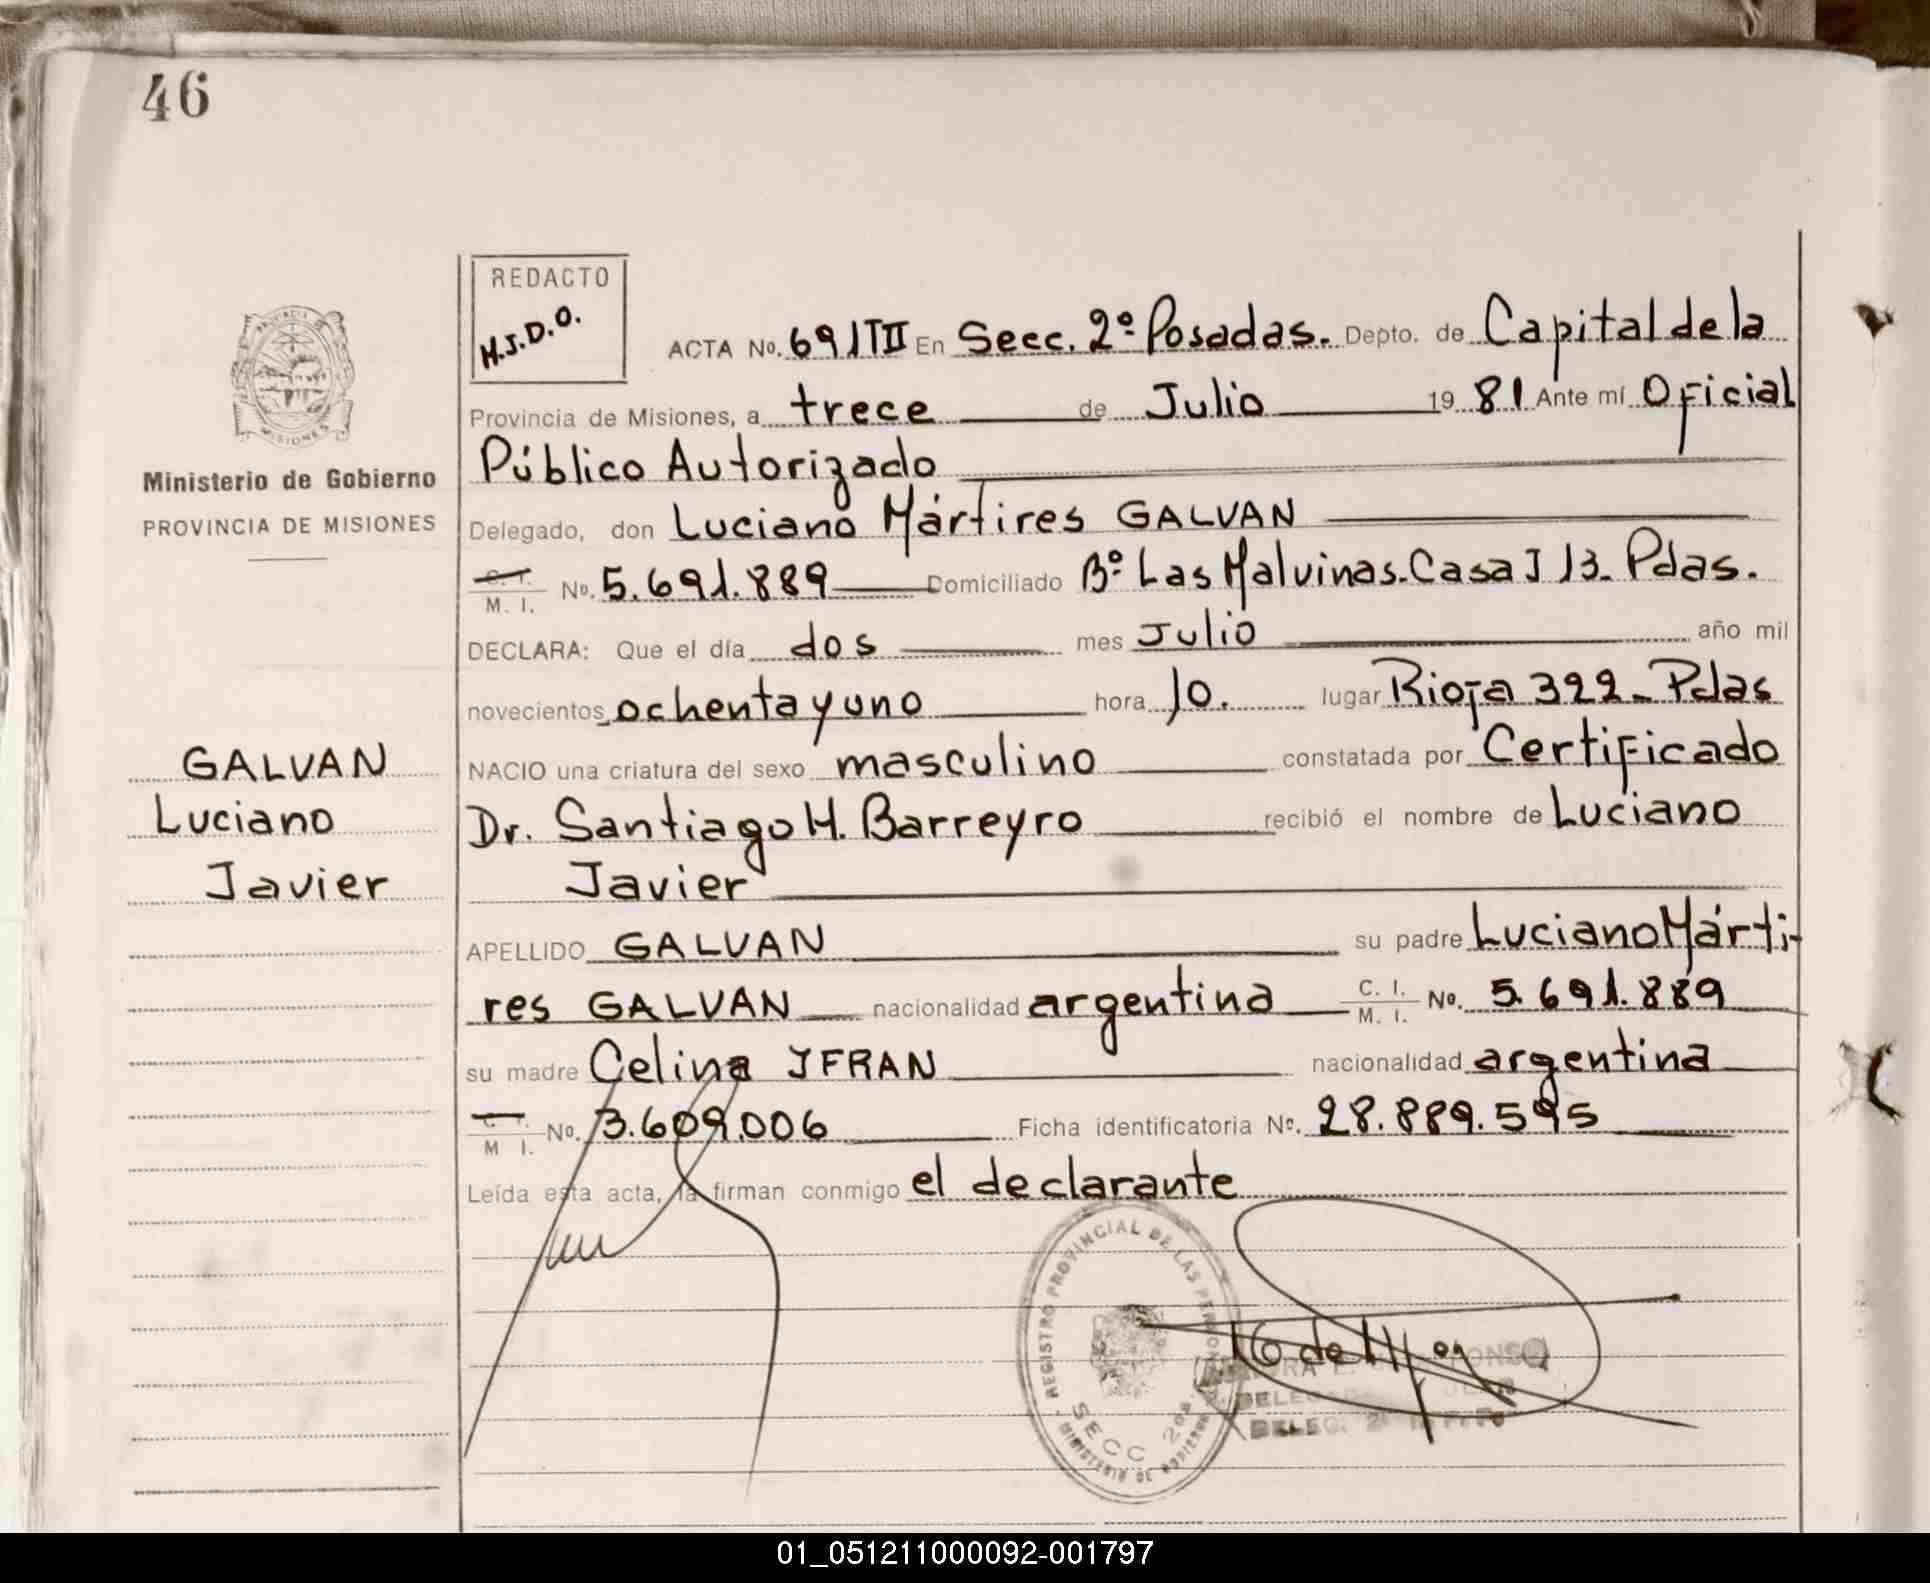 46
REDACTO
H.J.D.O.
PROVINCIA DE
MISIONES
Ministerio de Gobierno
PROVINCIA DE MISIONES
GALVAN
Luciano
Javier
ACTA No. 691TII En Secc. 2º Posadas. Depto. de Capital de la
Provincia de Misiones, a trece de Julio 19 81 Ante mí Oficial
Público Autorizado
Delegado, don Luciano Mártires GALVAN
C. I.
M. I. No. 5.691.889 Domiciliado Bº Las Malvinas. Casa J 13. Pdas.
DECLARA: Que el día dos mes Julio año mil
novecientos ochenta y uno hora 10. lugar Rioja 322 - Pdas
NACIO una criatura del sexo masculino constatada por Certificado
Dr. Santiago H. Barreyro recibió el nombre de Luciano
Javier
APELLIDO GALVAN su padre Luciano Márti-
res GALVAN nacionalidad argentina C. I. M. I. No. 5.691.889
su madre Celina IFRAN nacionalidad argentina
C. I.
M I. No. 3.609.006 Ficha identificatoria Nº. 28.889.595
Leída esta acta, la firman conmigo el declarante
REGISTRO PROVINCIAL DE LAS PERSONAS
SECC 2da
MINISTERIO DE GOBIERNO
DELEG. 2
01_051211000092-001797